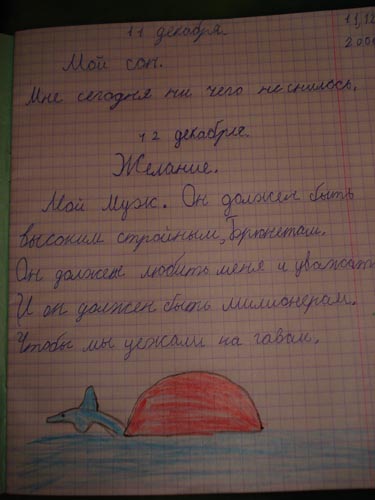 11 декабря.
11,12
200
Мой сон.
Мне сегодня ни чего не снилось.
12 декабрь.
Желание.
Мой Муж. Он должен быть
высоким стройным, Брюнетам.
Он должен любить меня и уважать
И он должен быть милионерам.
Чтобы мы уежали на гаваи.